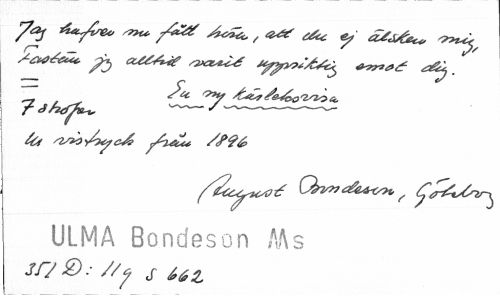 Jag hafver nu fått höra, att du ej älsker mig,
Fastän jg alltid varit uppriktig emot dig.
En ny Kärleksvisa
7 strofer
Ur vistryck från 1896
August Bondeson, Göteborg
ULMA Bondeson Ms
351 D: 11 q s 662